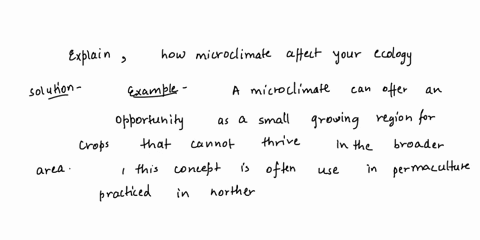 Explain, how microclimate affect your ecology
solution- Example- A microclimate can offer an
opportunity as a small growing region for
crops that cannot thrive In the broader
area. , this concept is often use in permaculture
practiced in norther